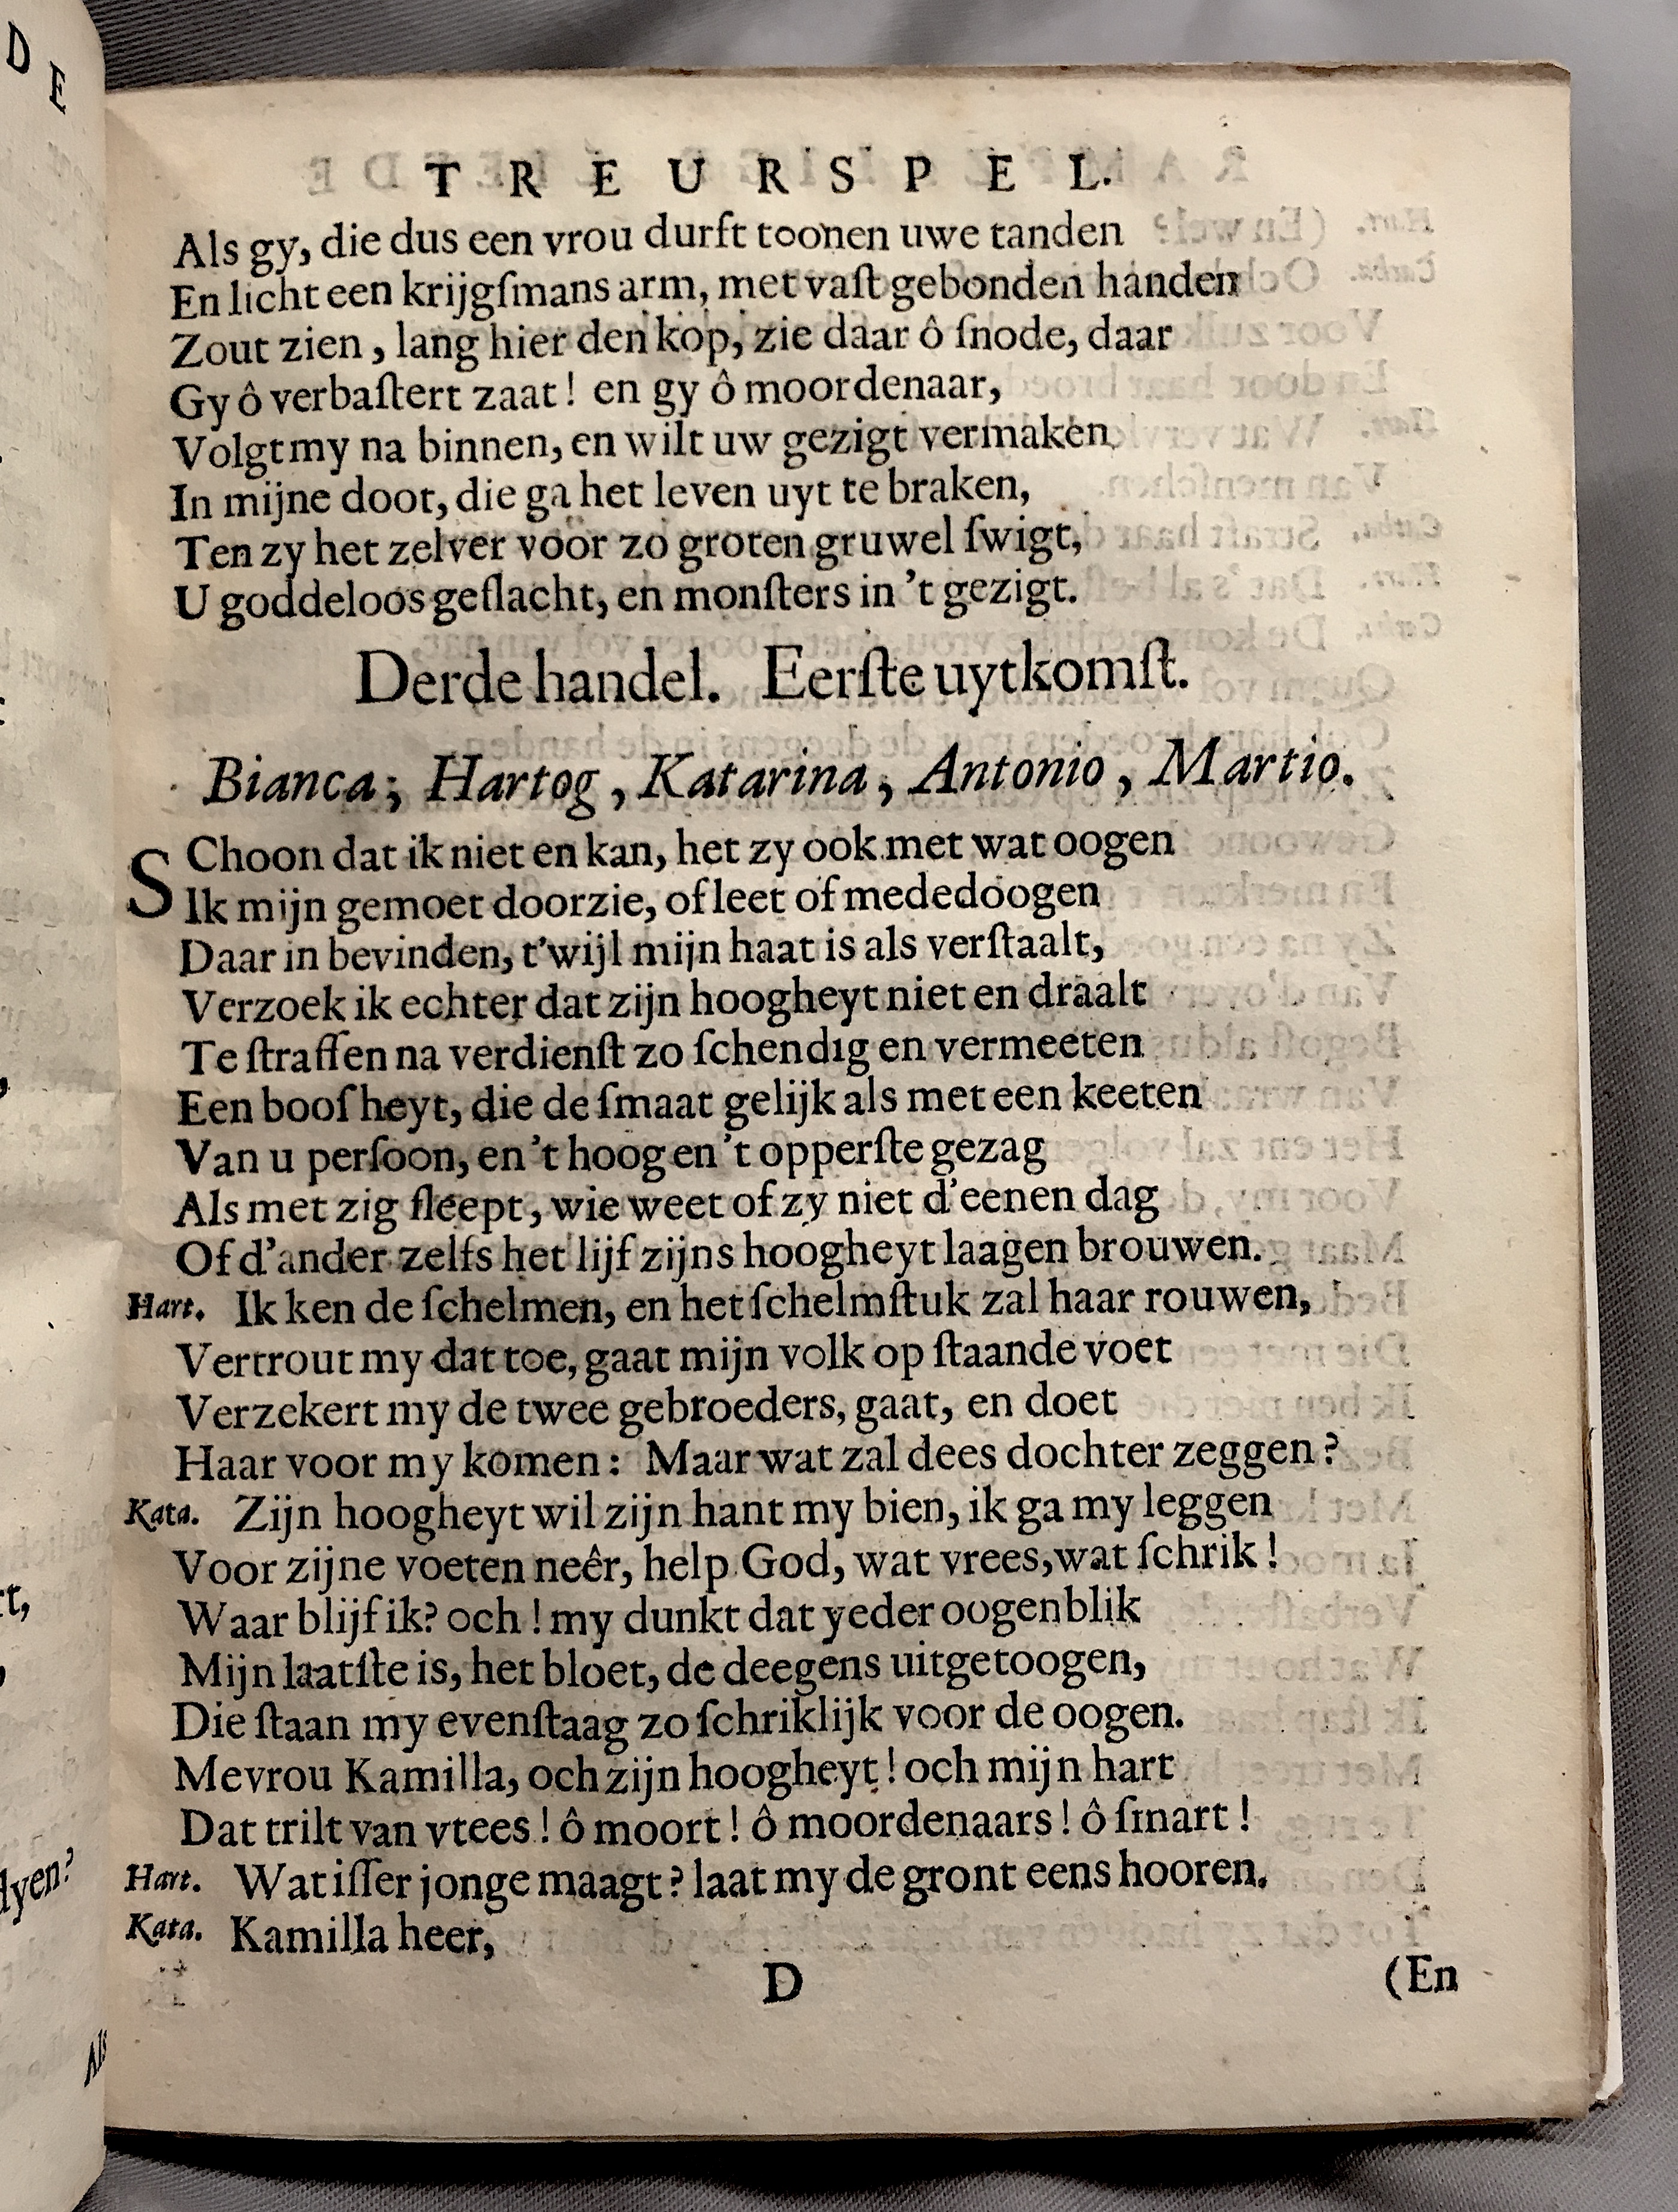 D E
TREURSPEL.
Als gy, die dus een vrou durft toonen uwe tanden
En licht een krijgſmans arm, met vaſt gebonden handen
Zout zien, lang hier den kop, zie daar ô ſnode, daar
Gy ô verbaſtert zaat! en gy ô moordenaar,
Volgt my na binnen, en wilt uw gezigt vermaken
In mijne doot, die ga het leven uyt te braken,
Ten zy het zelver voor zo groten gruwel ſwigt,
U goddeloos geſlacht, en monſters in 't gezigt.
Derde handel. Eerſte uytkomſt.
Bianca; Hartog, Katarina, Antonio, Martio.
SChoon dat ik niet en kan, het zy ook met wat oogen
Ik mijn gemoet doorzie, of leet of mededoogen
Daar in bevinden, t'wijl mijn haat is als verſtaalt,
Verzoek ik echter dat zijn hoogheyt niet en draalt
Te ſtraffen na verdienſt zo ſchendig en vermeeten
Een booſheyt, die de ſmaat gelijk als met een keeten
Van u perſoon, en 't hoog en 't opperſte gezag
Als met zig ſleept, wie weet of zy niet d'eenen dag
Of d'ander zelfs het lijf zijns hoogheyt laagen brouwen.
Hart. Ik ken de ſchelmen, en het ſchelmſtuk zal haar rouwen,
Vertrout my dat toe, gaat mijn volk op ſtaande voet
Verzekert my de twee gebroeders, gaat, en doet
Haar voor my komen: Maar wat zal dees dochter zeggen?
Kata. Zijn hoogheyt wil zijn hant my bien, ik ga my leggen
Voor zijne voeten neêr, help God, wat vrees, wat ſchrik!
Waar blijf ik? och! my dunkt dat yeder oogenblik
Mijn laatſte is, het bloet, de deegens uitgetoogen,
Die ſtaan my evenſtaag zo ſchriklijk voor de oogen.
Mevrou Kamilla, och zijn hoogheyt! och mijn hart
Dat trilt van vtees! ô moort! ô moordenaars! ô ſmart!
Hart. Wat iſſer jonge maagt? laat my de gront eens hooren.
Kata. Kamilla heer,
D (En
Als